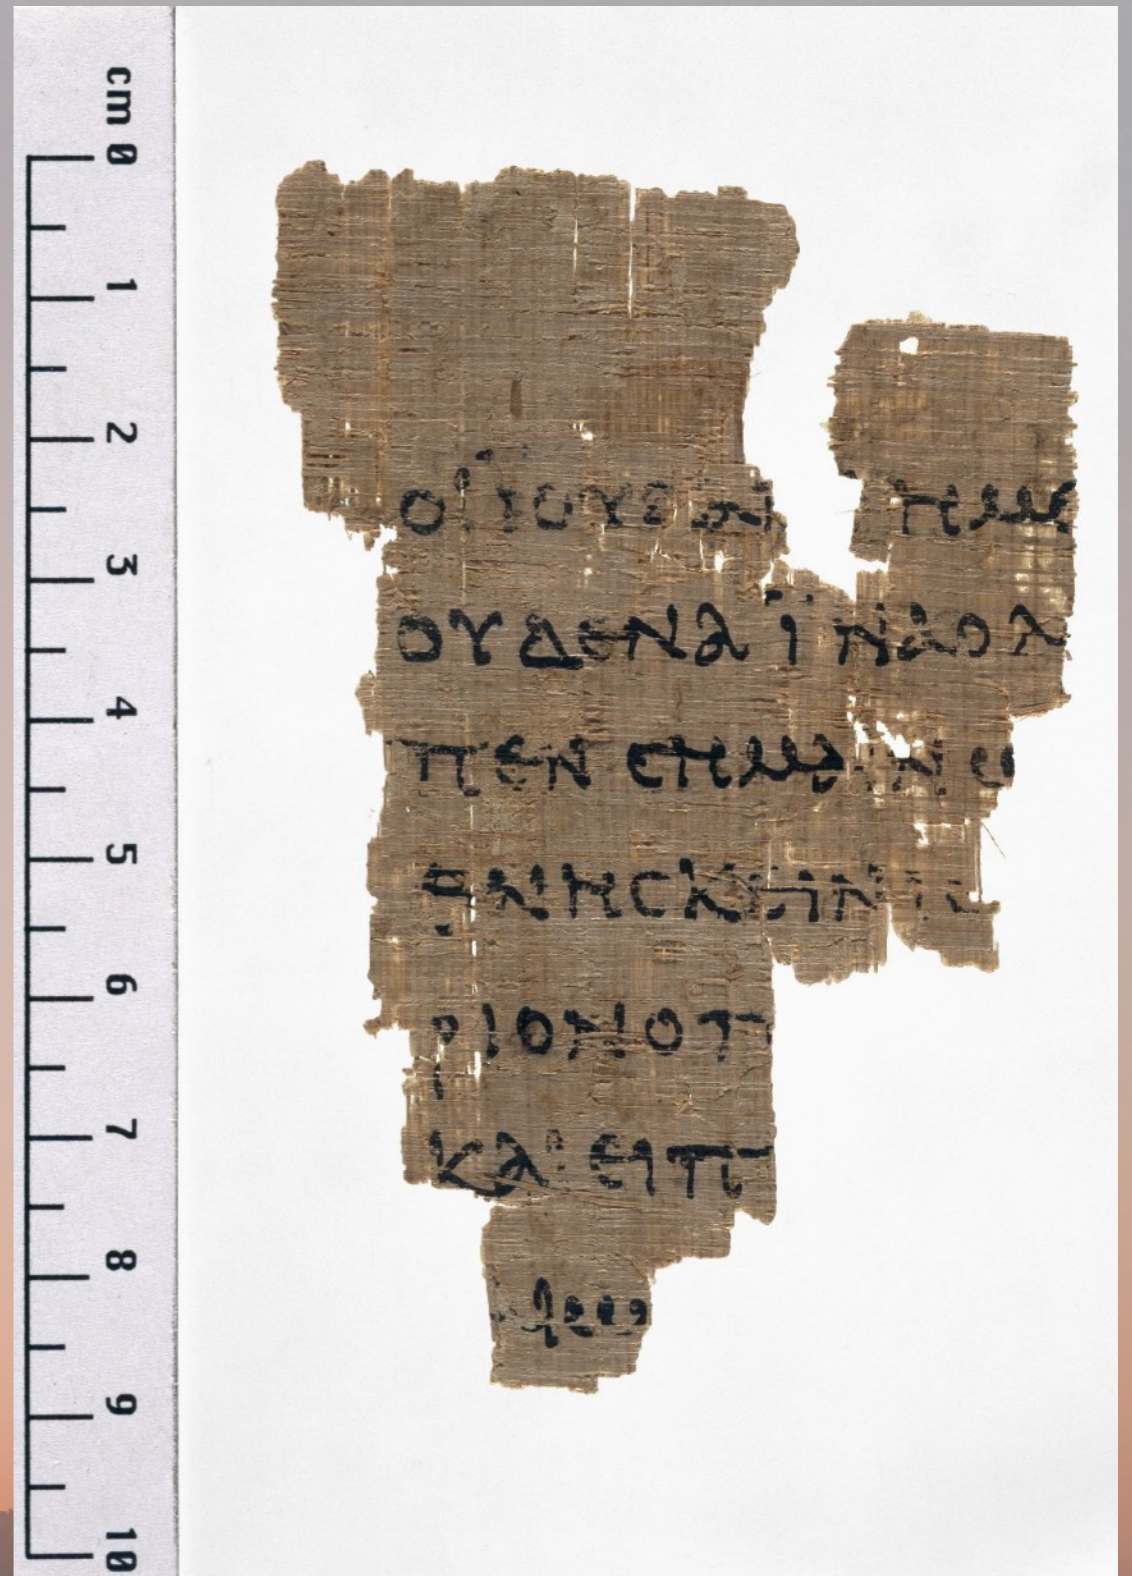 cm 0
1
2
3
4
5
6
7
8
9
10
ΟΙΪΟΥΔΑΙ ΗΜΙ
ΟΥΔΕΝΑΪΝΑΟΛ
ΠΕΝϹΗΜΑΙΝΩ
ΘΝΗϹΚΕΙΝΙϹ
ΡΙΟΝΟΠ
ΚΑΙΕΙΠ